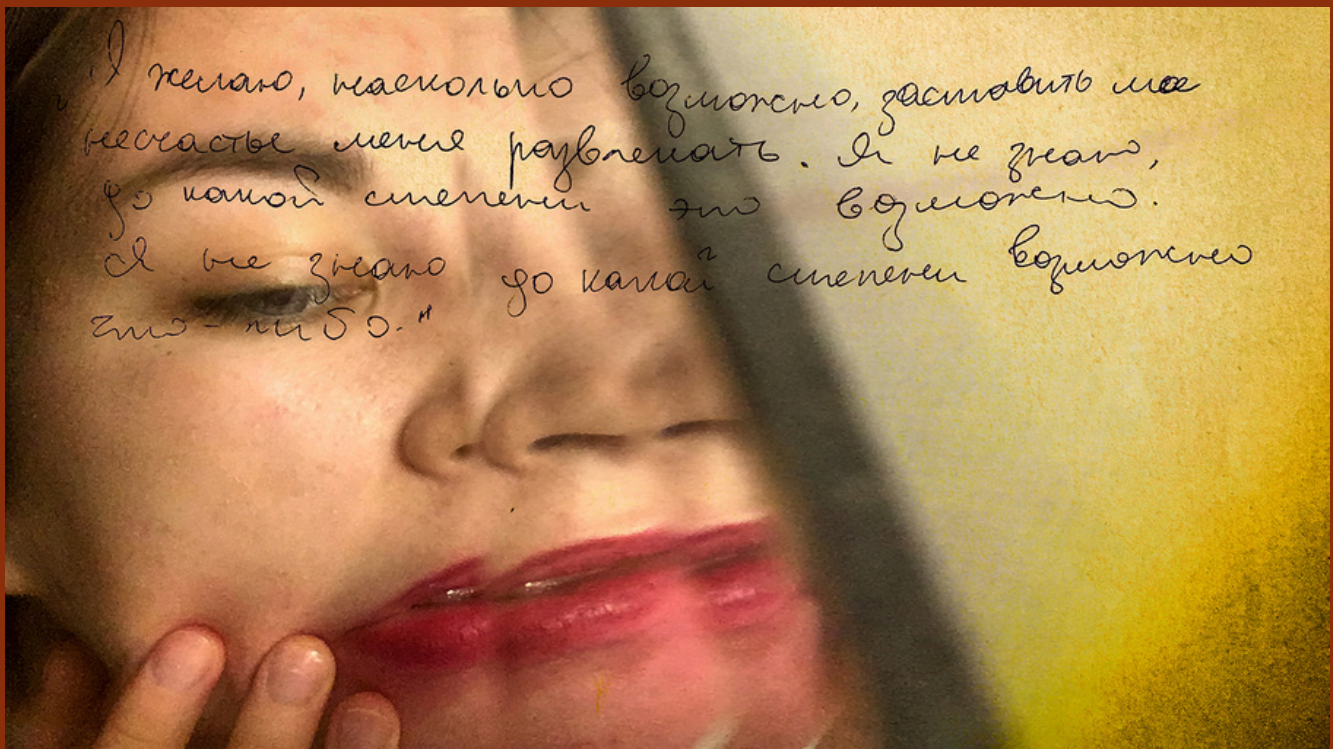 "Я желаю, насколько возможно, заставить мое
несчастье меня развлекать. Я не знаю,
до какой степени это возможно.
Я не знаю до какой степени возможно
что-либо."